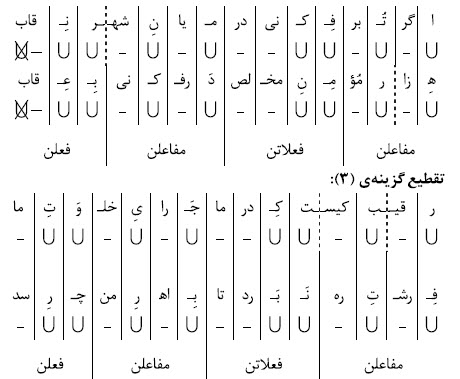 ا گر تُـ بر فِـ کـ نی در مـ یا نِ شهـ ر نِـ قاب
U – U – U U – – U – U – U U –
هِـ زا ر مُؤ مِـ نِ مخـ لص دَ رفـ کـ نی بِـ عِـ قاب
U – U – U U – – U – U – U U –
مفاعلن فعلاتن مفاعلن فعلن
تقطیع گزینه‌ی (۳):
ر قیـ ـب کیسـ ـت کِـ در ما جَـ را یِ خلـ وَ تِ ما
U – U – U U – – U – U – U U –
فِـ رشـ تِـ ره نَـ بَـ رد تا بِـ اهـ رِ من چـ رِ سد
U – U – U U – – U – U – U U –
مفاعلن فعلاتن مفاعلن فعلن